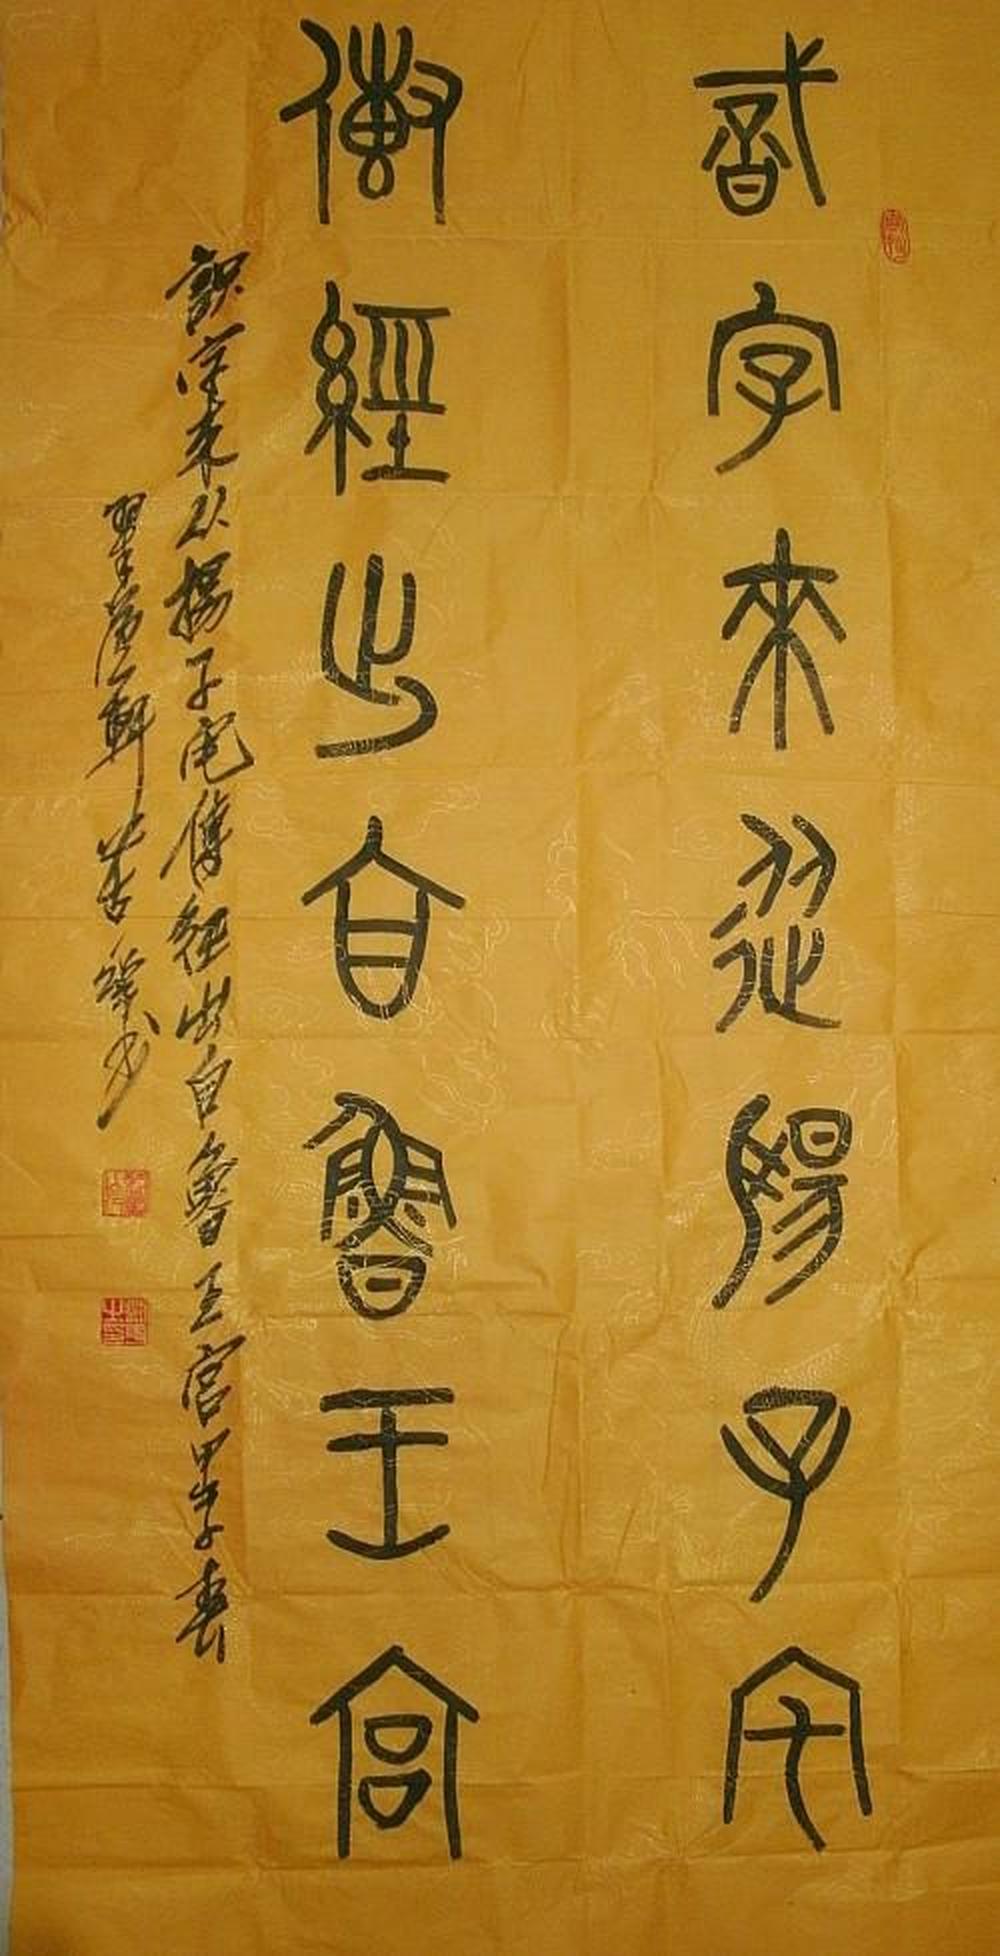 識字來從楊子宅
傳經出自魯王宮
識字來從楊子宅傳經出自魯王宮甲午春
軒 書